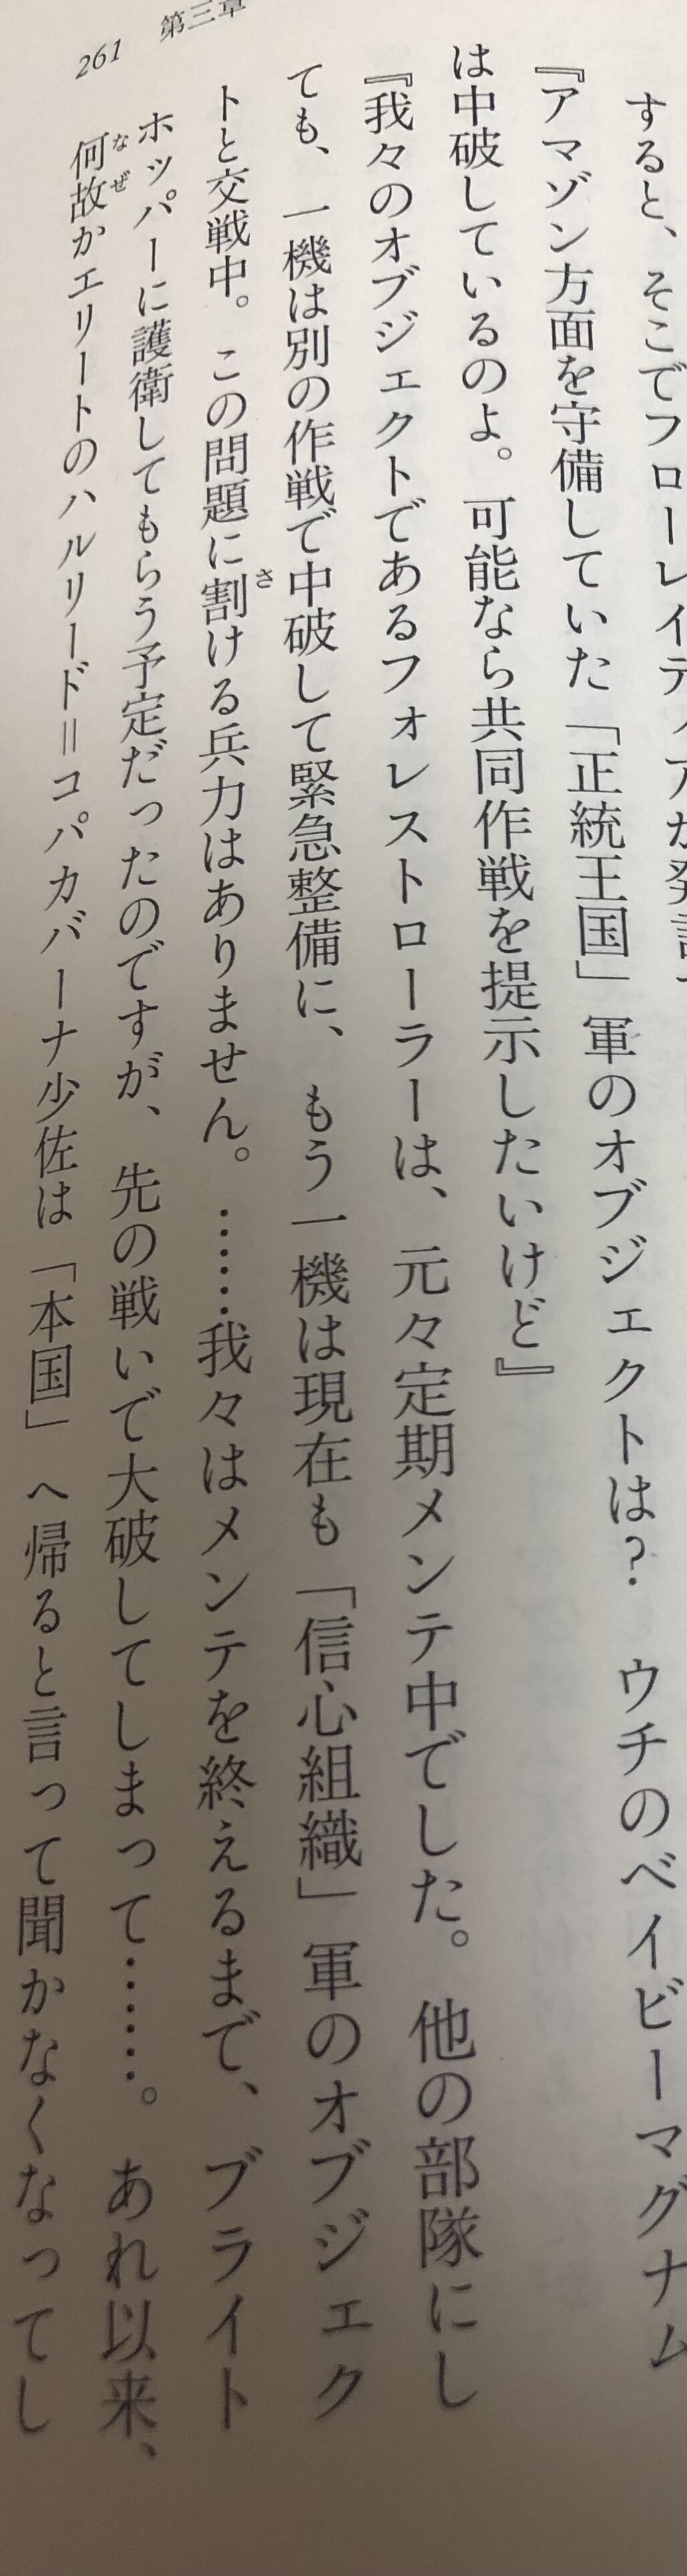 261 第三章
すると、そこでフローレイティアが発言
『アマゾン方面を守備していた「正統王国」軍のオブジェクトは? ウチのベイビーマグナム
は中破しているのよ。可能なら共同作戦を提示したいけど』
『我々のオブジェクトであるフォレストローラーは、元々定期メンテ中でした。他の部隊にし
ても、一機は別の作戦で中破して緊急整備に、もう一機は現在も「信心組織」軍のオブジェク
トと交戦中。この問題に割ける兵力はありません。……我々はメンテを終えるまで、ブライト
ホッパーに護衛してもらう予定だったのですが、先の戦いで大破してしまって……。あれ以来、
何故かエリートのハルリード=コパカバーナ少佐は「本国」へ帰ると言って聞かなくなってし